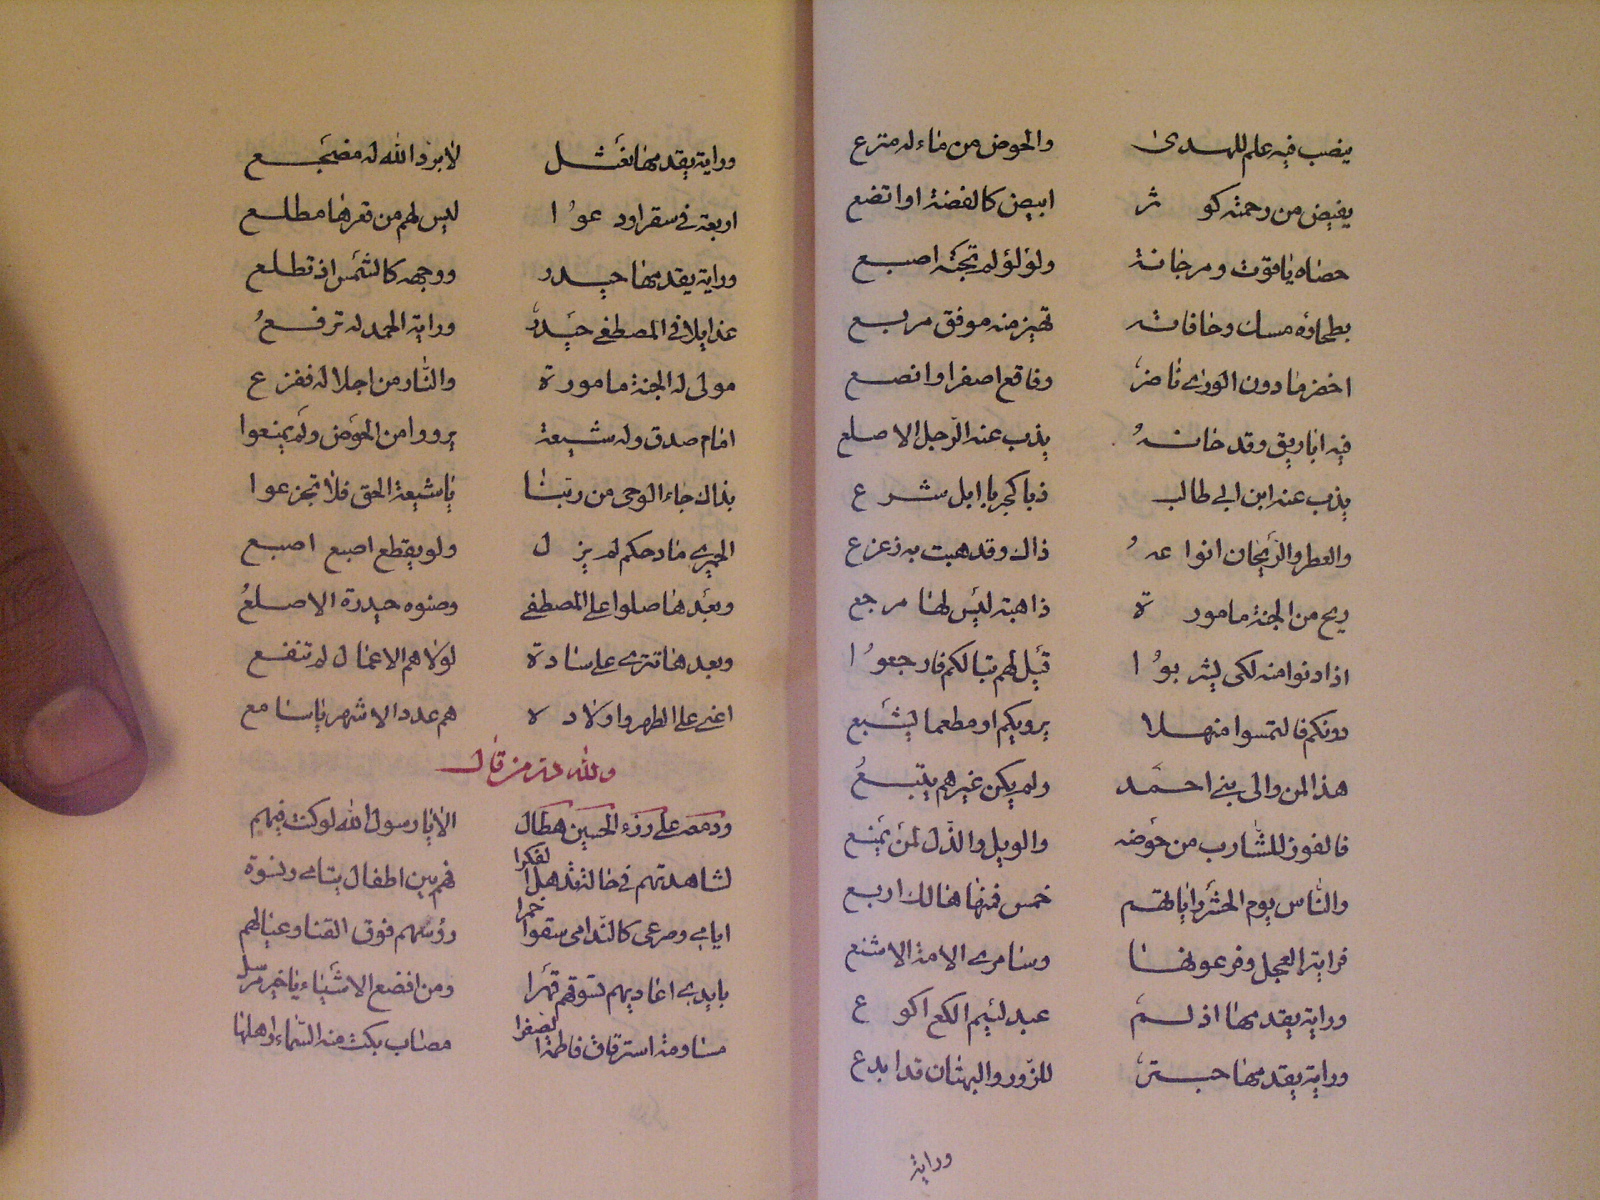 ينصب فيه علم للهدى والحوض من ماء له مترع
يفيض من رحمته كو ثر ابيض كالفضة او انصع
حصاه ياقوت ومرجانة ولؤلؤ لم تجنه اصبع
بطحاؤه مسك وحافاته تهتز منه موفق مربع
اخضر ما دون الورى ناضر وفاقع اصفر او انصع
فيه اباريق وقد حانه يذب عنه الرجل الاصلع
يذب عنه ابن ابي طالب ذبا كجربا ابل شر ع
والعطر والريحان انوا عه ذاك وقد هبت به زعزع
ريح من الجنة مامور ة ذاهبة ليس لها مرجع
اذا دنوا منه لكي يشر بوا قيل لهم تبا لكم فارجعوا
دونكم فالتمسوا منهلا يرويكم او مطعما يشبع
هذا لمن والى بني احمد ولم يكن غيرهم يتبع
فالفوز للشارب من حوضه والويل والذل لمن يمنع
والناس يوم الحشر راياتهم خمس فمنها هالك اربع
فراية العجل وفرعونها وسامري الامة الاشنع
وراية يقدمها اذلم عبد لئيم الكع اكو ع
وراية يقدمها حبتر للزور والبهتان قد ابدع
وراية
وراية يقدمها نعثل لا برد الله له مضجع
اربعة في سقر اود عوا ليس لهم من قعرها مطلع
وراية يقدمها حيدر ووجهه كالشمس اذ تطلع
غدا يلاقي المصطفى حيدر وراية الحمد له ترفع
مولى له الجنة مامورة والنار من اجلاله تفزع
امام صدق وله شيعة يرووا من الحوض ولم يمنعوا
بذاك جاء الوحي من ربنا يا شيعة الحق فلا تجزعوا
الحميري مادحكم لم يز ل ولو يقطع اصبع اصبع
وبعدها صلوا على المصطفى وصنوه حيدرة الاصلع
وبعدها تترى على سادة لولاهم الاعمال لم تنفع
اعني على الطهر واولاد ه هم عدد الاشهر يا سامع
ولله در من قال
ودمعه على رزء الحسين هطال الا يا رسول الله لو كنت فيهم
لشاهدتهم في حالة تذهل الفكرا فهم بين اطفال يتامى ونسوة
ايامى وصرعى كالندامى سقوا خمرا رؤسهم فوق القنا وعيالهم
بايدي اعاديهم تسوقهم قهرا ومن افضع الاشياء يا خير مرسل
مساومة استرقاق فاطمة الصغرا مصاب بكت منه السماء واهلها